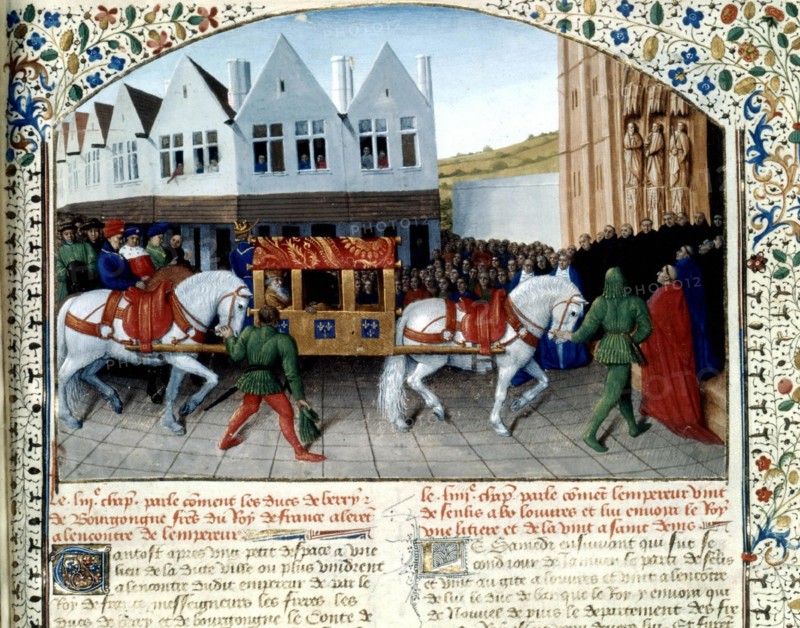 PHOTO12
PHOTO12
PHOTO12
PHOTO12
PHOTO12
Le liii^e chap. parle cõment les ducs de berry z
de Bourgongne freres du Roy de france alerẽt
a lencontre de lempereur
Tantost apres vng petit despace a vne
lieu de la dicte ville ou plus vindrent
a lencontre dudit empereur de par le
Roy de france, messeigneurs les freres les
ducs de berry et de bourgongne le Conte de
le liiii^e chap. parle cõmẽt lempereur vint
de senlis a louures et lui enuoia le Roy
vne litiere et de la vint a saint denis
Le Samedi ensuiuant qui fut se
cond iour de Januier le parti de senlis
et vint au giste a louures et vint a lencontre
de lui le duc de bar que le Roy y enuoia qui
de nouuel de puis le departement des six